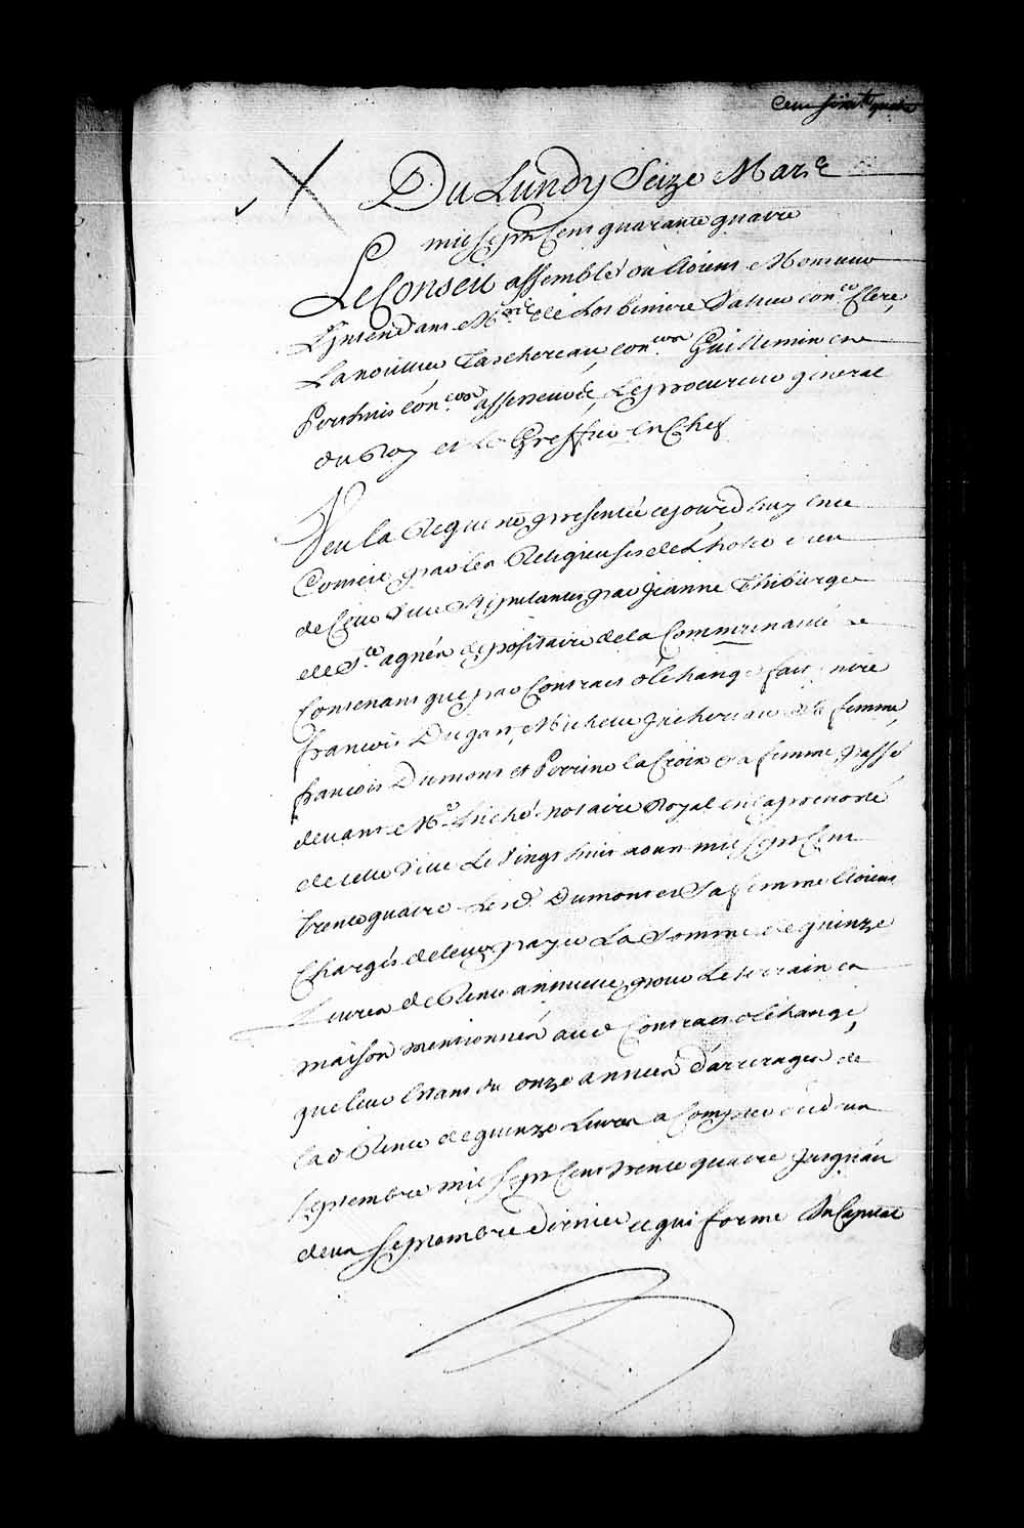 Du Lundy Seize Mars
mil sept cens quarante quatre
Le Conseil assemblé ou étoient Monsieur
L'Intendant Mrs de Lotbiniere con.er Clerc,
Lanouillier, Taschereau, con.ers Guillemin et
Perthuis con.ers assesseurs, Le procureur general
du Roy et le Greffier en Chef
Veu la Requete presentée ce jourd'huy en ce
Conseil par les Religieuses de L'hotel dieu
de cette Ville stipulantes par Jeanne Thibierge
de Ste agnés depositaire de la Communauté
Contenant que par Contrait d'échange fait entre
françois Dugas, Michelle Grichereau sa femme,
françois Dumont et Perrine la Croix sa femme, passé
devant Me Pinguet notaire Royal en la prevosté
de cette Ville Le Vingt huit aoust mil sept cent
trente quatre Led. Dumont et Sa femme étoient
Chargés de leur payer La Somme de quinze
Livres de Rente annuelle, pour Le terrain et
maison mentionnés aud. Contrait d'échange,
que leur étant du onze années d'arrerages de
lad. Rente de quinze Livres a Compter
septembre mil sept cent trente quatre Jusqu'au
deux septembre dernier ce qui forme Un Capital